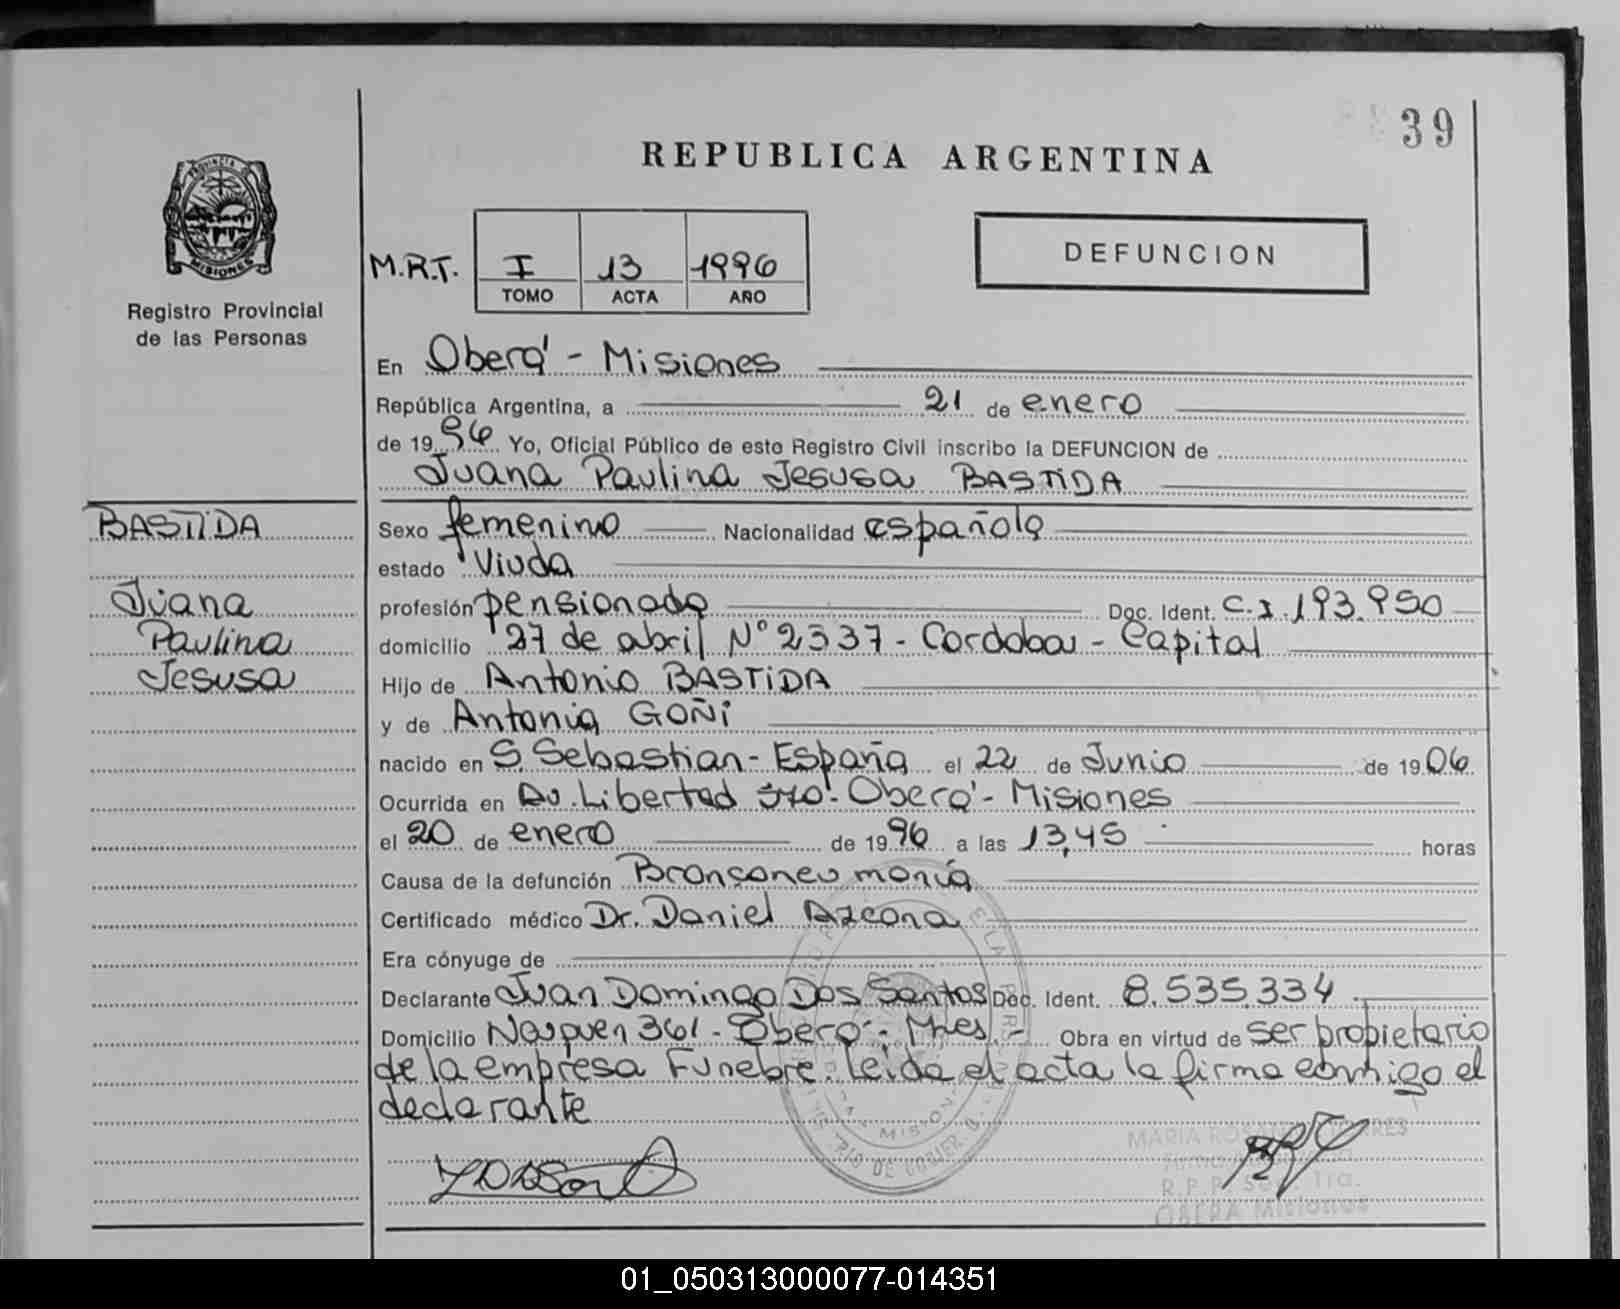 39
REPUBLICA ARGENTINA
PROVINCIA DE
MISIONES
Registro Provincial
de las Personas
DEFUNCION
M.R.T. I 13 1996
TOMO ACTA AÑO
En Oberá - Misiones
República Argentina, a 21 de enero
de 1996 Yo, Oficial Público de este Registro Civil inscribo la DEFUNCION de
Juana Paulina Jesusa BASTIDA
BASTIDA
Juana
Paulina
Jesusa
Sexo femenino Nacionalidad española
estado Viuda
profesión pensionada Doc. Ident. C.I. 193.950
domicilio 27 de abril Nº 2337 - Cordoba - Capital
Hijo de Antonio BASTIDA
y de Antonia GOÑI
nacido en S. Sebastian - España el 22 de Junio de 1906
Ocurrida en Av. Libertad 370 - Oberá - Misiones
el 20 de enero de 1996 a las 13,45 horas
Causa de la defunción Bronconeumonía
Certificado médico Dr. Daniel Azcona
Era cónyuge de
Declarante Juan Domingo Dos Santos Doc. Ident. 8.535.334
Domicilio 361 - Oberá - Mnes. - Obra en virtud de ser propietario
de la empresa Funebre. Leida el acta la firma conmigo el
declarante
MARIA ROSA
R.P.P. 1ra.
OBERA Misiones
01_050313000077-014351